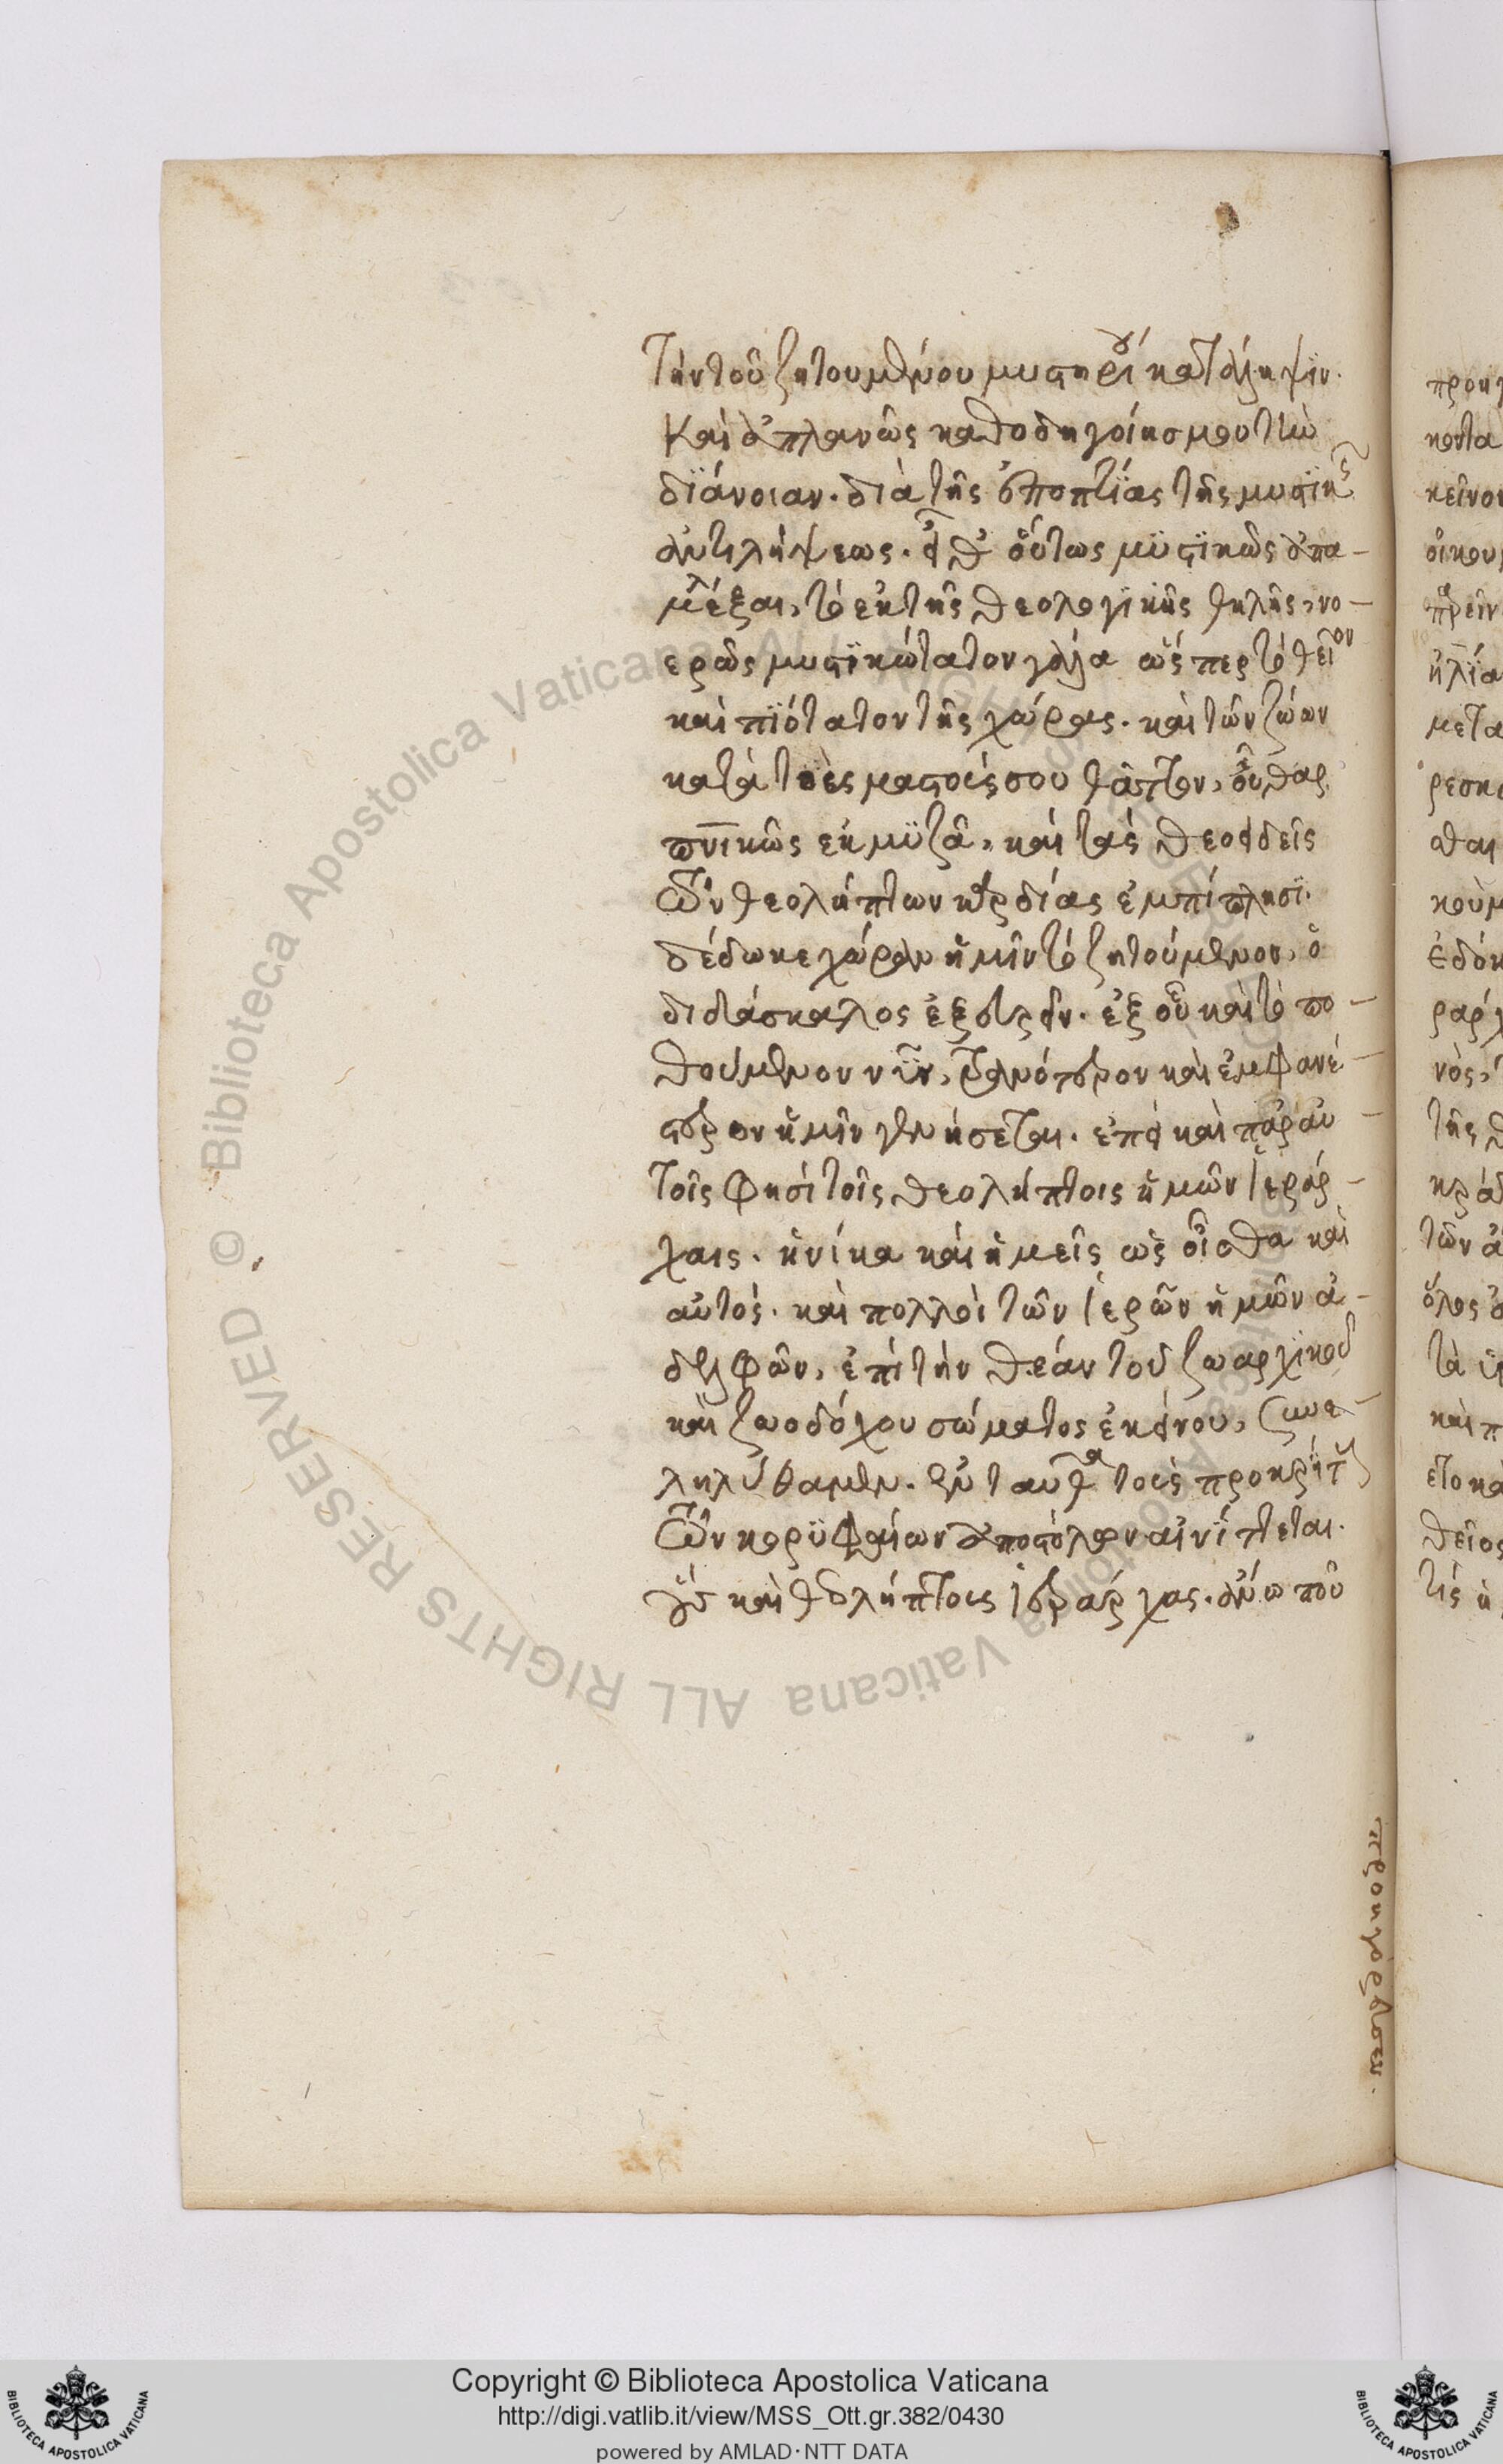 τὴν τοῦ ζητουμένου μυστηρίου κατάληψϊν.
Καὶ ἀπλανῶς καθοδηγοίης μου τὴν
δϊάνοιαν. διὰ τῆς ἐποπτίας τῆς μυστϊκῆς
ἀντιλήψεως. εἶθ' οὕτως μϋστϊκῶς ἀπα-
μέλξαι, τὸ ἐκ τῆς θεολογϊκῆς θηλῆς, νο-
ερῶς μυστϊκώτατον γάλα ὥσπερ τὸ θεῖον
καὶ πϊότατον τῆς χώρας. καὶ τῶν ζώων
κατὰ τοὺς μαστούς σου θᾶττον, οὖθαρ
πνϊκῶς ἐκμϋζᾶ, καὶ τὰς θεοειδεῖς
τῶν θεολήπτων καρδίας ἐμπίπλησϊ.
δέδωκε χώραν ἡμῖν τὸ ζητούμενον, ὁ
διδάσκαλος ἐξειπεῖν. ἐξ οὗ καὶ τὸ πο-
θούμενον νῦν, τρανότερον καὶ ἐμφανέ-
στερον ἡμῖν γενήσεται. ἐπεὶ καὶ παρ' αὐ-
τοῖς φησὶ τοῖς θεολήπτοις ἡμῶν ἱεράρ-
χαις. ἡνίκα καὶ ἡμεῖς ὡς οἶσθα καὶ
αὐτός. καὶ πολλοὶ τῶν ἱερῶν ἡμῶν ἀ-
δελφῶν, ἐπὶ τὴν θέαν τοῦ ζωαρχϊκοῦ
καὶ ζωοδόχου σώματος ἐκείνου, συνε-
ληλύθαμεν. ἐνταῦθα τοὺς προκρίτους
τῶν κορϋφαίων ἀποστόλων αἰνίττεται.
οὓς καὶ θεολήπτους ἱεράρχας. ἄνω που
προηγόρευσεν.